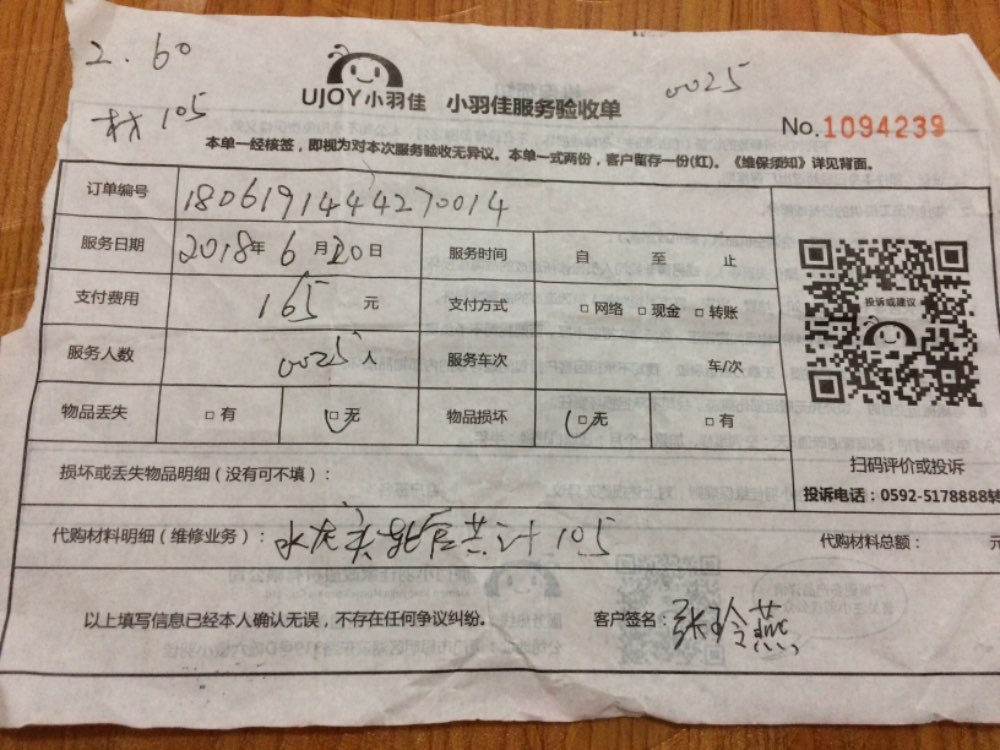 2.60
0025
UJOY小羽佳 小羽佳服务验收单
材105
No.1094239
本单一经核签，即视为对本次服务验收无异议。本单一式两份，客户留存一份(红)。《维保须知》详见背面。
订单编号 1806191444270014
服务日期 2018年6月20日 服务时间 自 至 止
支付费用 165元 支付方式 □网络 □现金 □转账
投诉或建议
服务人数 0025人 服务车次 车/次
物品丢失 □有 □无 物品损坏 □无 □有
扫码评价或投诉
损坏或丢失物品明细（没有可不填）：
投诉电话：0592-5178888转
代购材料明细（维修业务）：水龙头 共计105 代购材料总额： 元
以上填写信息已经本人确认无误，不存在任何争议纠纷。 客户签名：张玲燕